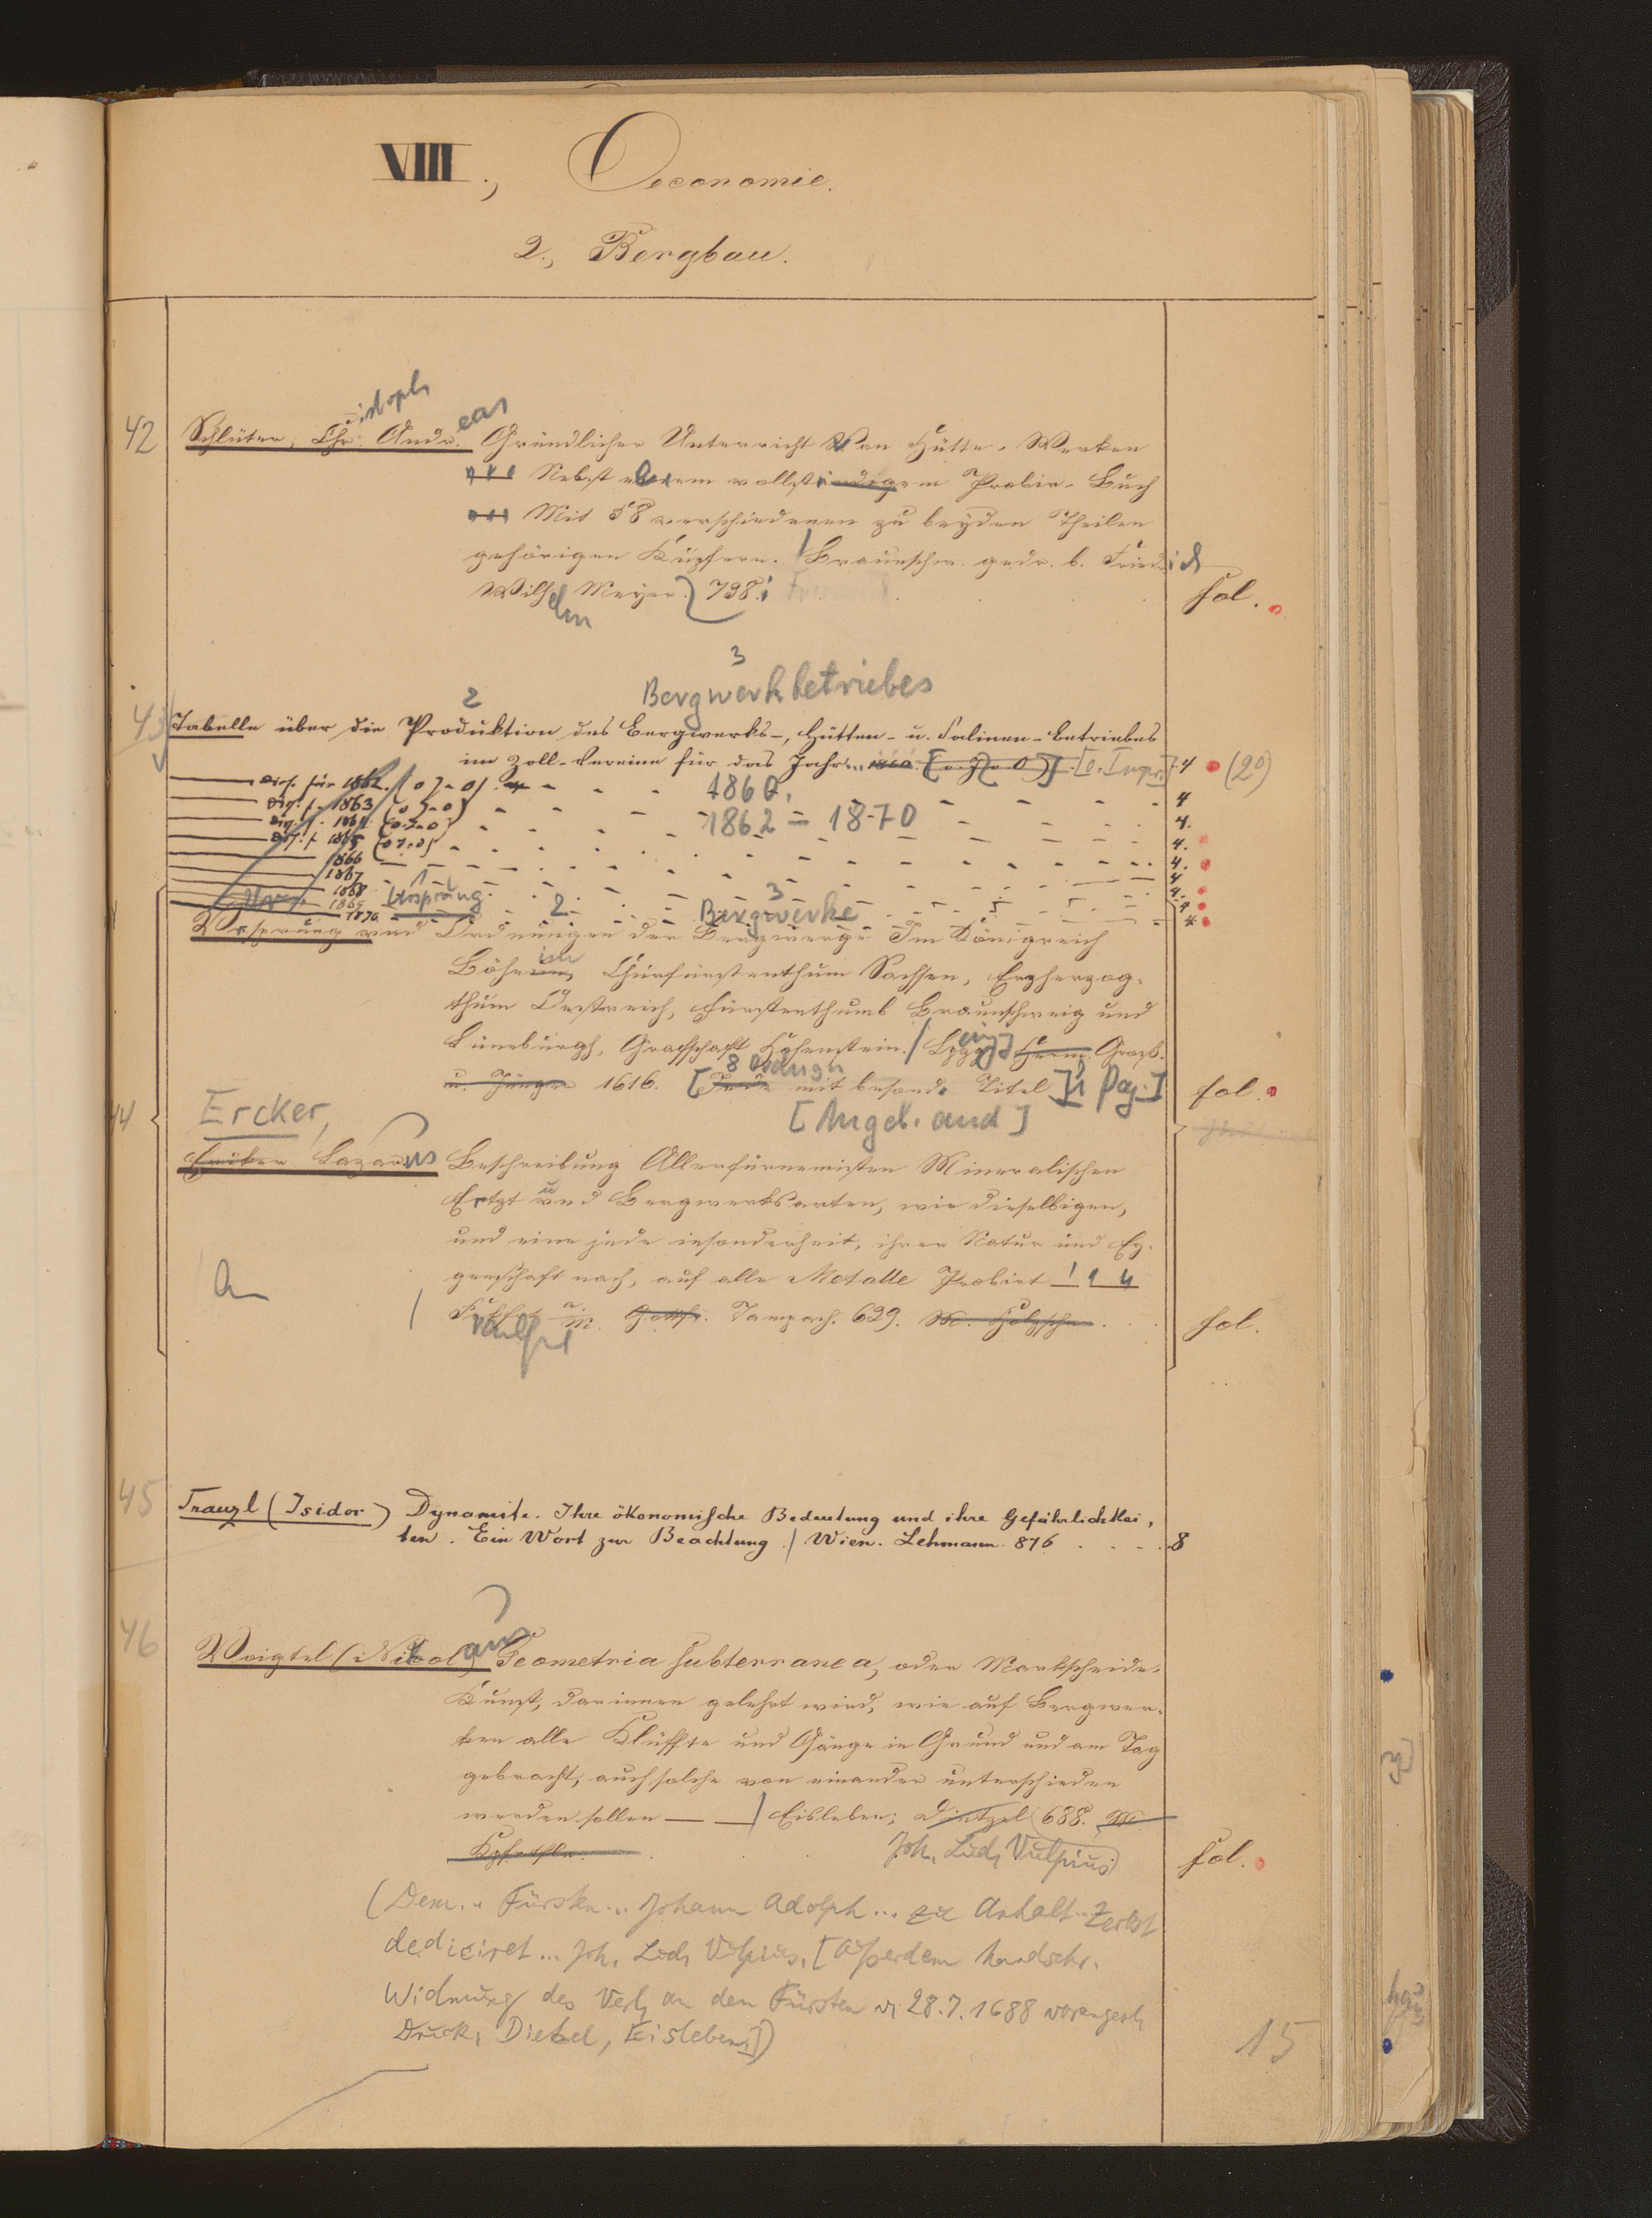 VIII., Oeconomie.
2., Bergbau.
istoph
eas
42 Schlüter, Chr. Andr. Gründlicher Unterricht Von Hütte-Werken
Nebst einem vollständigem Probier-Buch
Mit 58 verschiedenen zu beyden Theilen
gehörigen Kupfern. / Braunschw. gedr. b. Friedrich
Wilhelm Meyer. 738. fol.
3
2 Bergwerkbetriebes
43 Tabelle über die Produktion des Bergwerks-, Hütten- u. Salinen-betriebes
im Zoll-Vereine für das Jahr... 1860 [o. J. o. O] [o. Impr.] 4 (2°)
Dies. für 1862. (o J-o) 1860. 4
1863 (o J-o) 1862 - 1870 4.
1864 (o J-o) 4.
1865 (o J-o) 4.
1866 4
1867 4
1868 4
1869 4
1870
1 Ursprung 2 3 Bergwerke
Ursprung und Ordnungen der Bergwerge Im Königreich
Böheim, Churfürstenthum Sachsen, Erzherzog-
thum Oestreich, Fürstenthumb Braunschweig und
Lüneburgh, Graffschaft Hohenstein. / Lpzg Henn. Groß.
8 Ordnugn
u. Jünger 1616. [Jede mit besond. Titel] u Pag.] fol.
[Angeb. and]
44 Ercker,
Lazarus Beschreibung Allerfürnemisten Mineralischen
Ertzt und Bergwerksarten, wie dieselbigen,
und eine jede insonderheit, ihrer Natur und Ey-
genschaft nach, auf alle Metalle Probirt
a
Frkft a. M. Tampach. 629. fol.
45 Trauzl (Isidor) Dynamite. Ihre ökonomische Bedeutung und ihre Gefährlichkei-
ten. Ein Wort zur Beachtung. / Wien. Lehmann. 876 . . . . 8
46 Voigtel (Nikol) aus Geometria subterranea, oder Markscheide-
Kunst, darinnen gelehrt wird, wie auf Bergwer-
ken alle Klüffte und Gänge in Grund und am Tag
gebracht, auch solche von einander unterschieden
werden sollen — — / Eisleben; Dietzel 688. M.
Kpfrtfln. Joh. Ludw Vulpius) fol.
(Dem... Fürsten... Johann Adolph... zu Anhalt-Zerbst
dediciret... Joh. Ludw Vulpius. [Außerdem handschr.
Widmung des Verf. an den Fürsten v. 28.7.1688 vorangeh.
Druck, Dietzel, Eisleben])
15